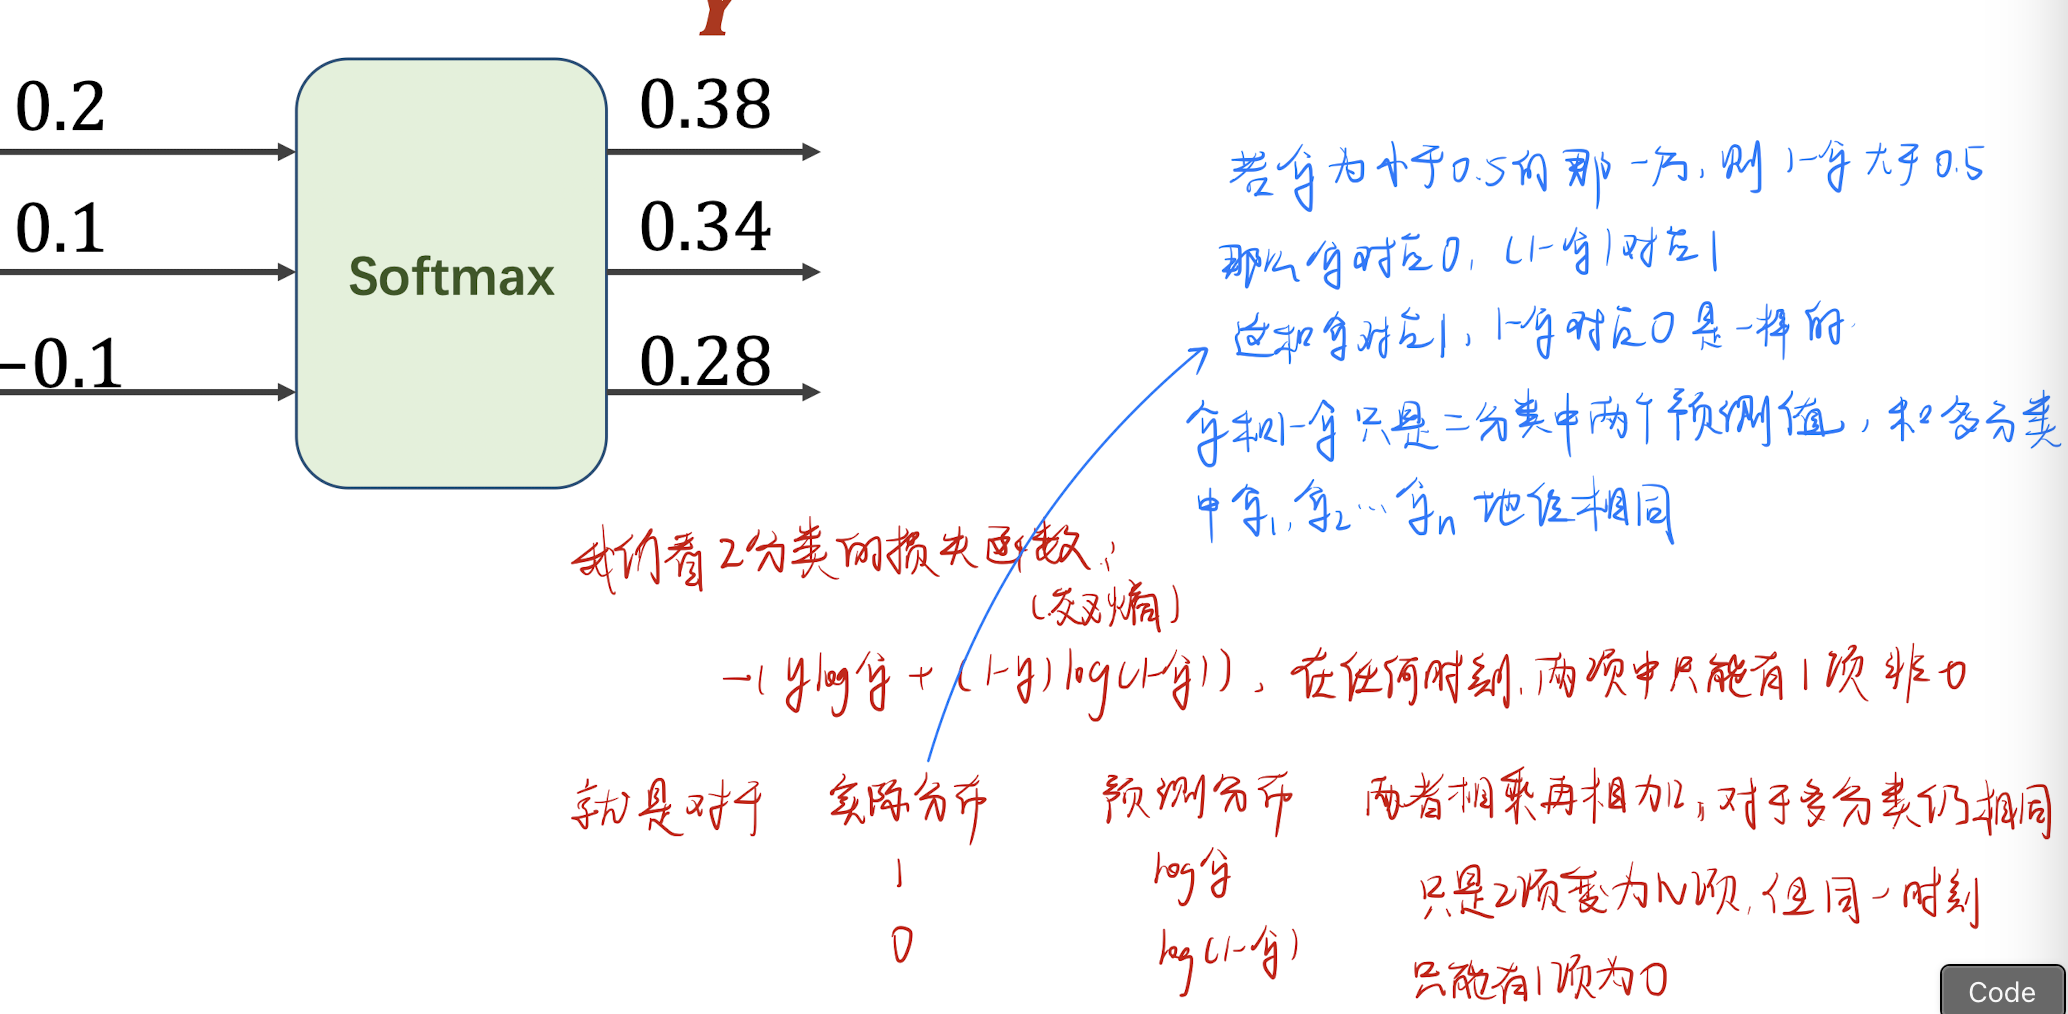 Ŷ
0.2
0.38
0.1
0.34
Softmax
−0.1
0.28
若ŷ为小于0.5的那一方,则1-ŷ大于0.5
那么ŷ对应0,(1-ŷ)对应1
这和ŷ对应1,1-ŷ对应0是一样的.
ŷ和1-ŷ只是二分类中两个预测值,和多分类
中ŷ₁,ŷ₂…ŷn地位相同
我们看2分类的损失函数:
(交叉熵)
-(ylogŷ+(1-y)log(1-ŷ)),在任何时刻,两项中只能有1项非0
就是对于 实际分布 预测分布 两者相乘再相加,对于多分类仍相同
1 logŷ 只是2项变为N项,但同一时刻
0 log(1-ŷ) 只能有1项为0
Code